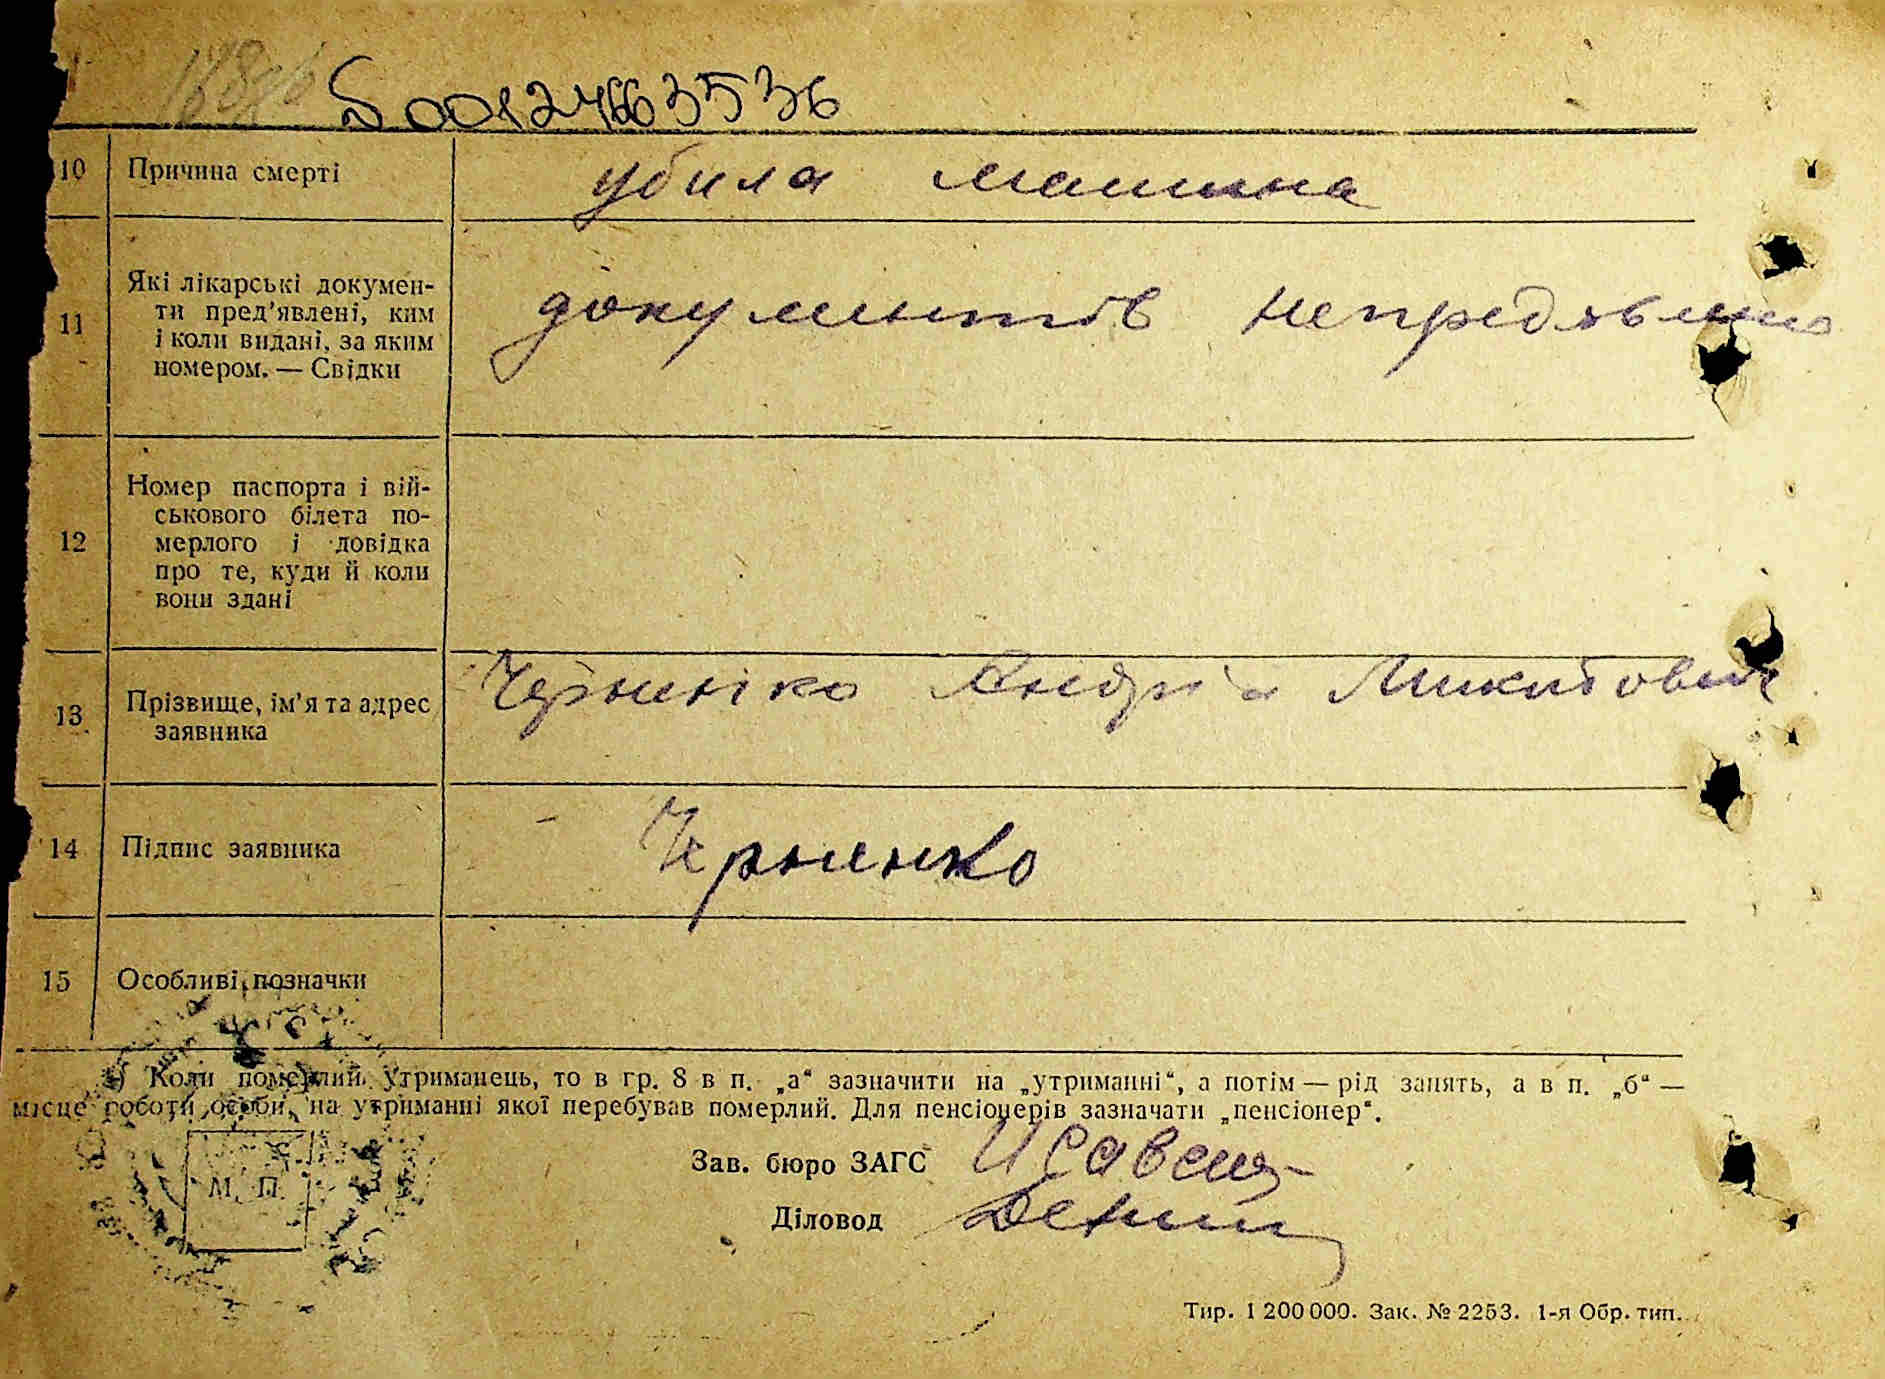 S00124663536
10 Причина смерті убила машина
11 Які лікарські докумен-
ти пред'явлені, ким
і коли видані, за яким
номером. — Свідки
документів непредявлено
12 Номер паспорта і вій-
ськового білета по-
мерлого і довідка
про те, куди й коли
вони здані
13 Прізвище, ім'я та адрес
заявника
Черненко Андрій Микитович
14 Підпис заявника Черненко
15 Особливі позначки
Коли померлий утриманець, то в гр. 8 в п. „а“ зазначити на „утриманні“, а потім — рід занять, а в п. „б“ —
місце роботи особи, на утриманні якої перебував померлий. Для пенсіонерів зазначати „пенсіонер“.
Зав. бюро ЗАГС
М. П.
Діловод
Тир. 1 200 000. Зак. № 2253. 1-я Обр. тип.